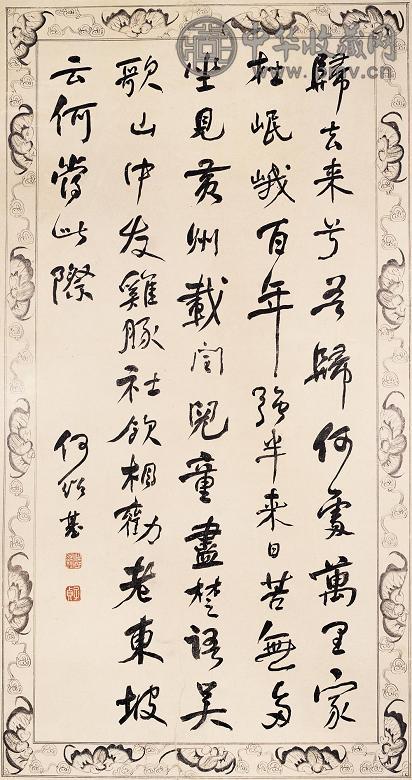 歸去来兮吾歸何處萬里家
在岷峨百年強半来日苦無多
坐見黄州載閏兒童盡楚語吴
歌山中友雞豚社飲相勸老東坡
云何當此際
何紹基
中华收藏网